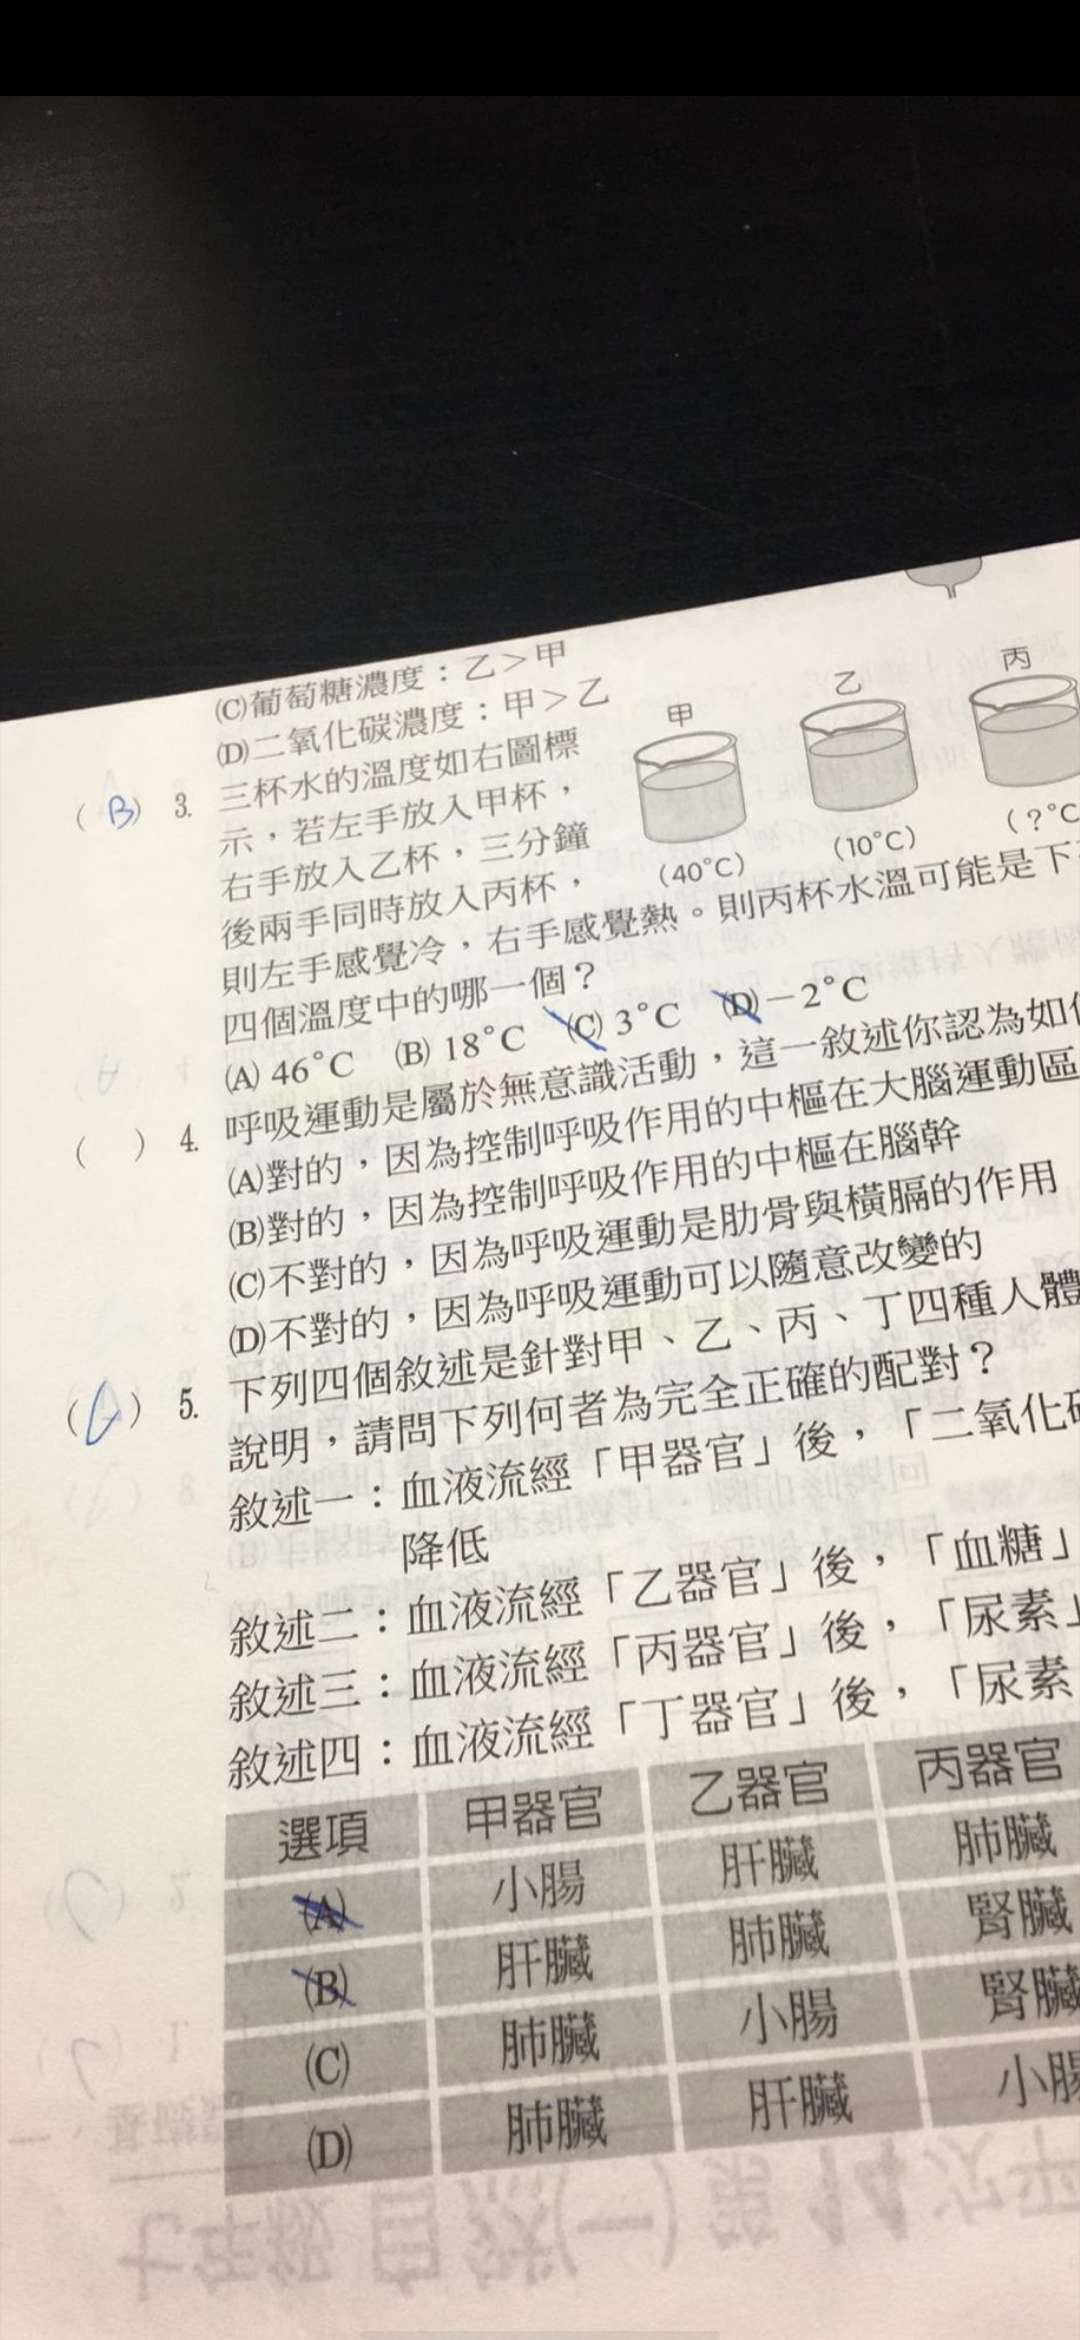 (C)葡萄糖濃度：乙＞甲
(D)二氧化碳濃度：甲＞乙
甲
乙
丙
(40°C)
(10°C)
(?°C
(B) 3. 三杯水的溫度如右圖標
示，若左手放入甲杯，
右手放入乙杯，三分鐘
後兩手同時放入丙杯，
則左手感覺冷，右手感覺熱。則丙杯水溫可能是下
四個溫度中的哪一個？
(A) 46°C (B) 18°C (C) 3°C (D)－2°C
( ) 4. 呼吸運動是屬於無意識活動，這一敘述你認為如
(A)對的，因為控制呼吸作用的中樞在大腦運動區
(B)對的，因為控制呼吸作用的中樞在腦幹
(C)不對的，因為呼吸運動是肋骨與橫膈的作用
(D)不對的，因為呼吸運動可以隨意改變的
( ) 5. 下列四個敘述是針對甲、乙、丙、丁四種人體
說明，請問下列何者為完全正確的配對？
敘述一：血液流經「甲器官」後，「二氧化
降低
敘述二：血液流經「乙器官」後，「血糖」
敘述三：血液流經「丙器官」後，「尿素」
敘述四：血液流經「丁器官」後，「尿素
選項 甲器官 乙器官 丙器官
(A) 小腸 肝臟 肺臟
(B) 肝臟 肺臟 腎臟
(C) 肺臟 小腸 腎臟
(D) 肺臟 肝臟 小腸